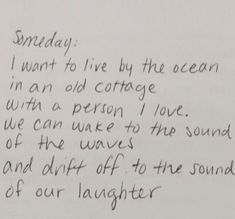 Someday:
I want to live by the ocean
in an old cottage
with a person I love.
We can wake to the sound
of the waves
and drift off to the sound
of our laughter